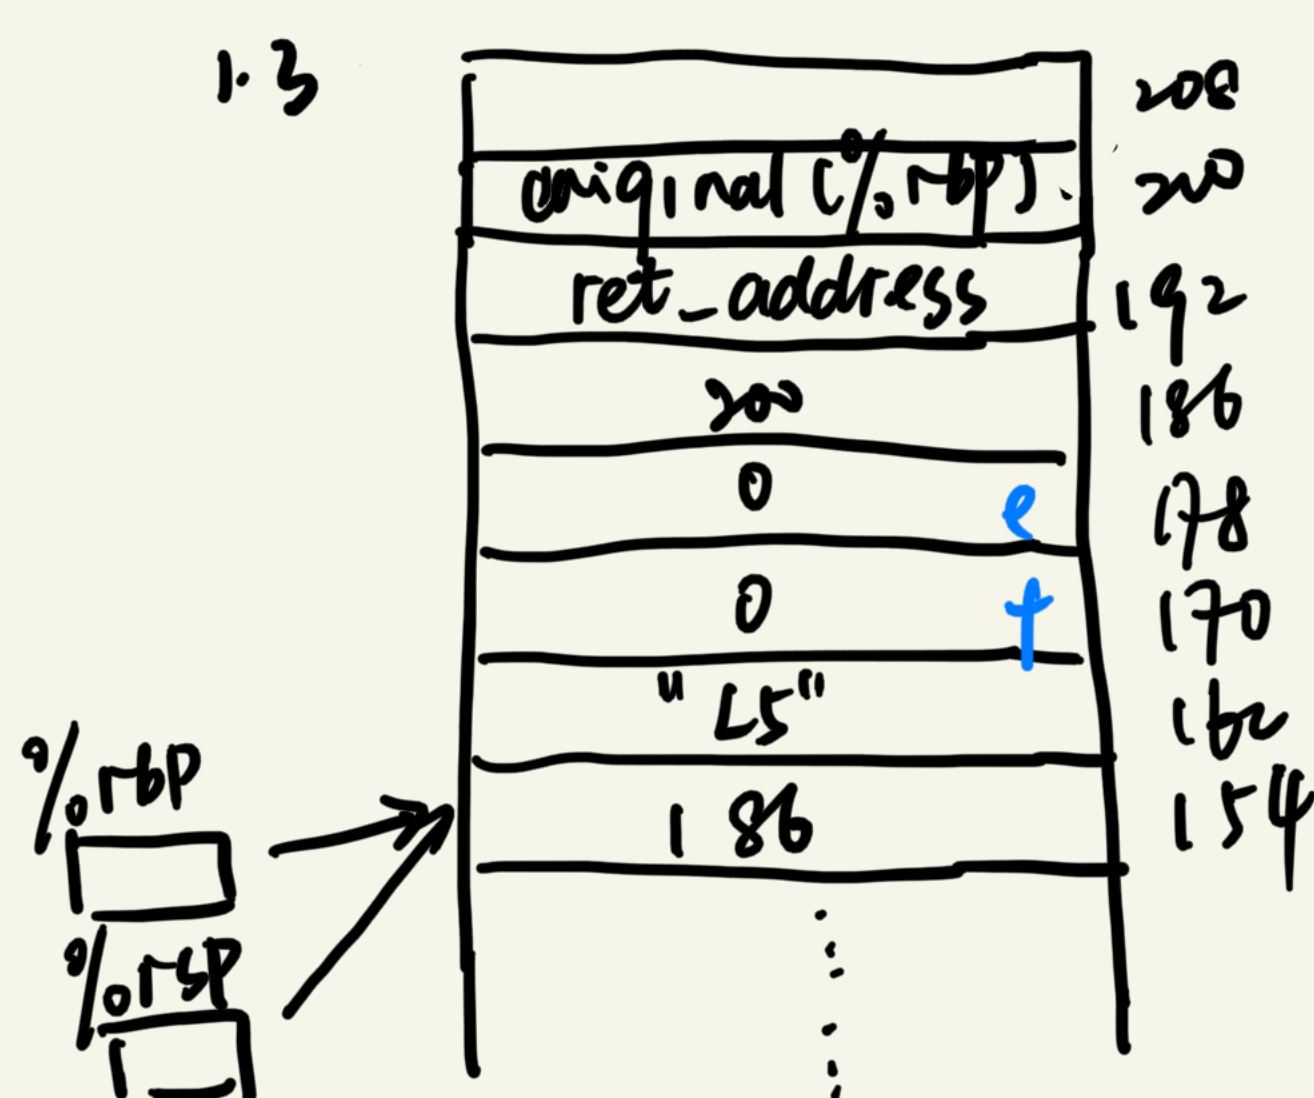 1.3
208
original (%rbp) 200
ret_address 192
200 186
0 e 178
0 f 170
"L5" 162
%rbp 186 154
%rsp